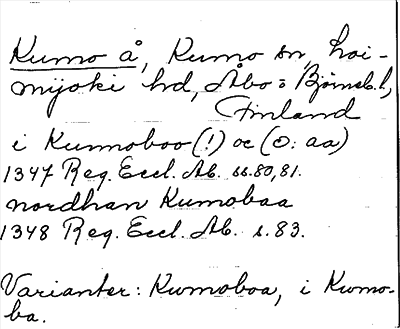 Kumo å, Kumo sn, Loi-
mijoki hd, Åbo = Björneb. l,
Finland
i Kumoboo (!) oc (ɔ: aa)
1347 Reg. Eccl. Ab. ss. 80, 81.
nordhan Kumobaa
1348 Reg. Eccl. Ab. s. 83.
Varianter: Kwmoboa, i Kwmo-
ba.